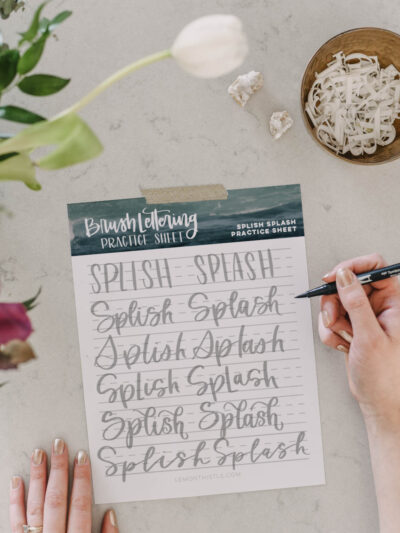 BrushLettering
PRACTICE SHEET
SPLISH SPLASH
PRACTICE SHEET
SPLISH SPLASH
Splish Splash
Splish Splash
Splish Splash
Splish Splash
Splish Splash
LEMONTHISTLE.COM